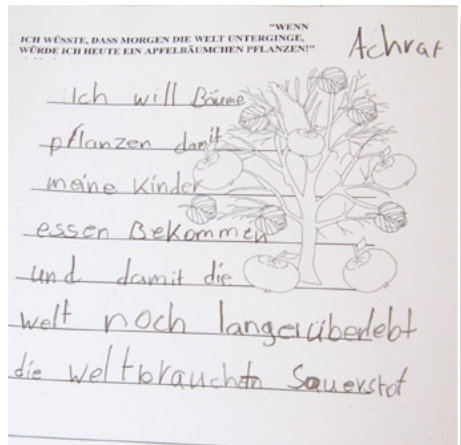 "WENN
ICH WÜSSTE, DASS MORGEN DIE WELT UNTERGINGE,
WÜRDE ICH HEUTE EIN APFELBÄUMCHEN PFLANZEN!"
Achrat
Ich will Bäume
pflanzen damit
meine Kinder
essen Bekommen
und damit die
welt noch langerüberlebt
die weltbraucht Sauerstof